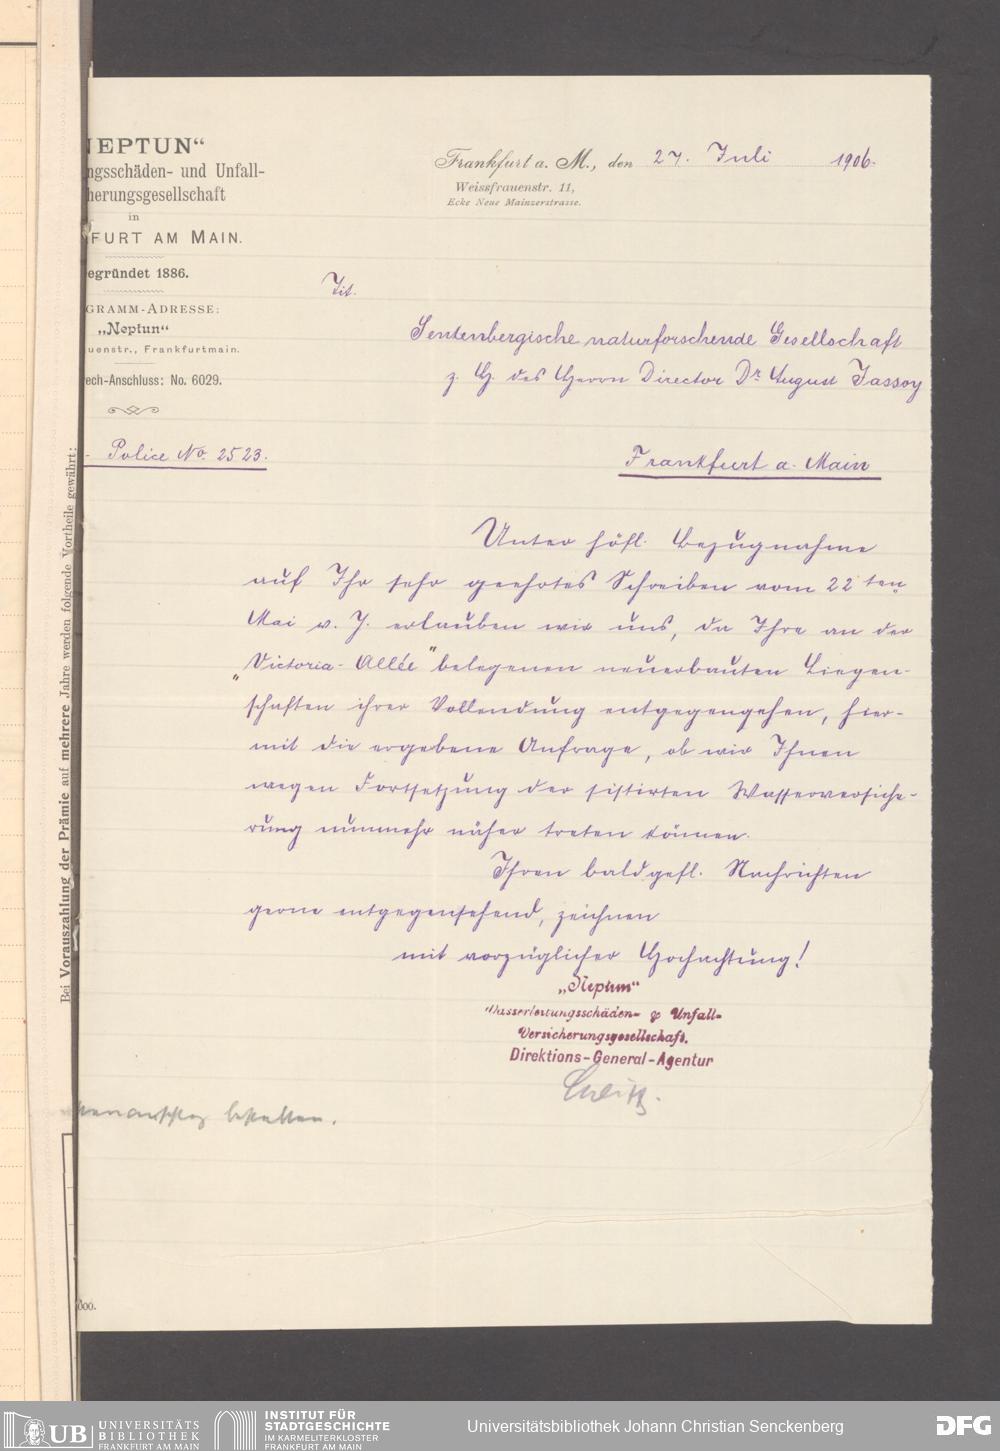 NEPTUN“
ngsschäden- und Unfall-
herungsgesellschaft
in
FURT AM MAIN.
egründet 1886.
GRAMM-ADRESSE:
„Neptun“
uenstr., Frankfurtmain.
ech-Anschluss: No. 6029.
Police No. 2523.
Frankfurt a. M., den 27. Juli 1906.
Weissfrauenstr. 11,
Ecke Neue Mainzerstrasse.
Tit.
Senkenbergische naturforschende Gesellschaft
z. H. des Herrn Director Dr. August Jassoy
Frankfurt a. Main
Unter höfl. Bezugnahme
auf Ihr sehr geehrtes Schreiben vom 22ten
Mai v. J. erlauben wir uns, da Ihre an der
„Victoria-Allée“ belegenen neuerbauten Liegen-
schaften ihrer Vollendung entgegengehen, hier-
mit die ergebene Anfrage, ob wir Ihnen
wegen Fortsetzung der sistirten Wasserversiche-
rung nunmehr näher treten können.
Ihren baldgefl. Nachrichten
gerne entgegensehend, zeichnen
mit vorzüglicher Hochachtung!
„Neptun“
Wasserleitungsschäden- & Unfall-
Versicherungsgesellschaft.
Direktions-General-Agentur
Bei Vorauszahlung der Prämie auf mehrere Jahre werden folgende Vortheile gewährt:
000.
UB UNIVERSITÄTS
BIBLIOTHEK
FRANKFURT AM MAIN
INSTITUT FÜR
STADTGESCHICHTE
IM KARMELITERKLOSTER
FRANKFURT AM MAIN
Universitätsbibliothek Johann Christian Senckenberg
DFG